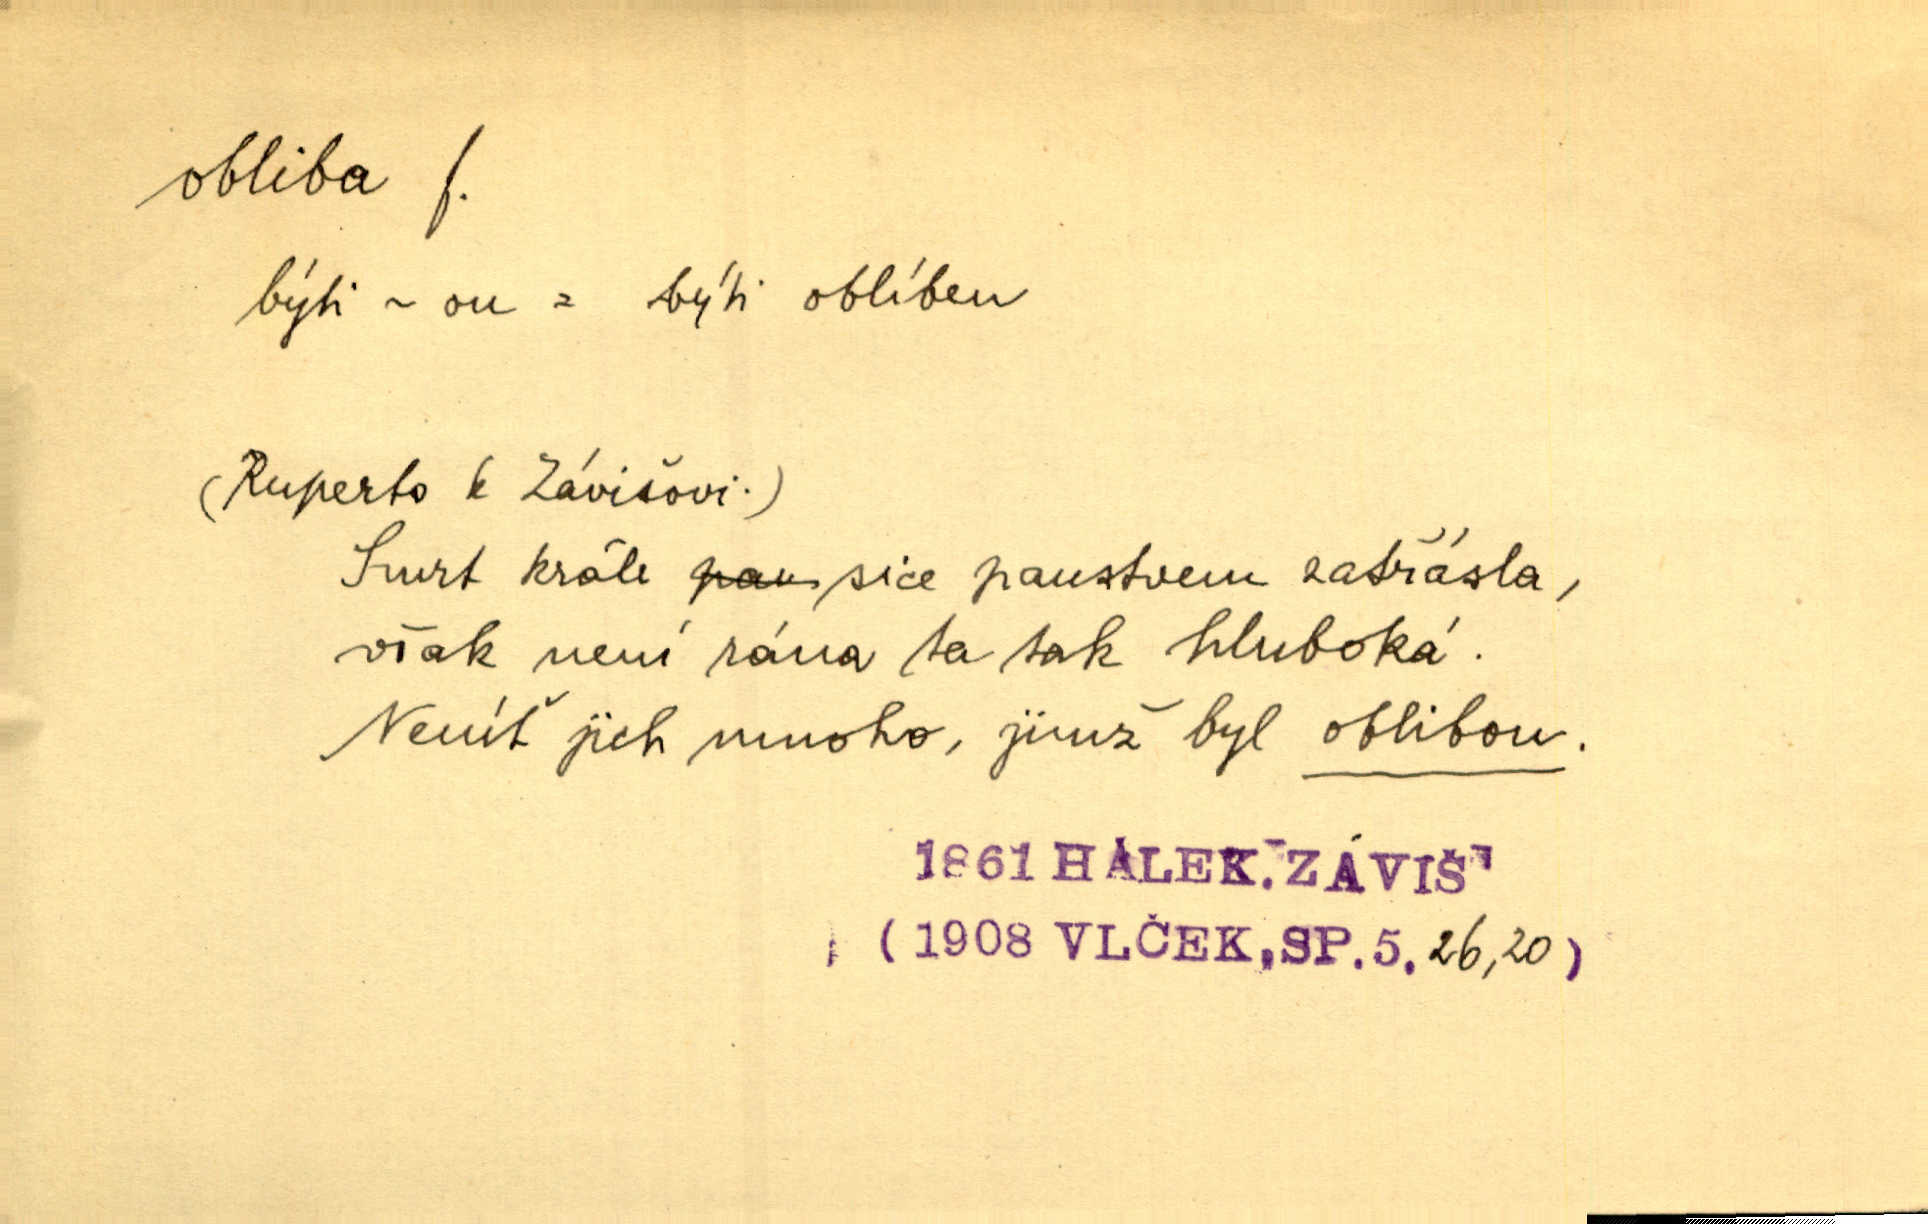 obliba f.
býti ~ ou = býti oblíben
(Ruperto k Závišovi.)
Smrt krále pan sice panstvem zatřásla,
však není rána ta tak hluboká.
Neníť jich mnoho, jimž byl oblibou.
1861 HÁLEK. "ZÁVIŠ"
(1908 VLČEK, SP. 5. 26,20)